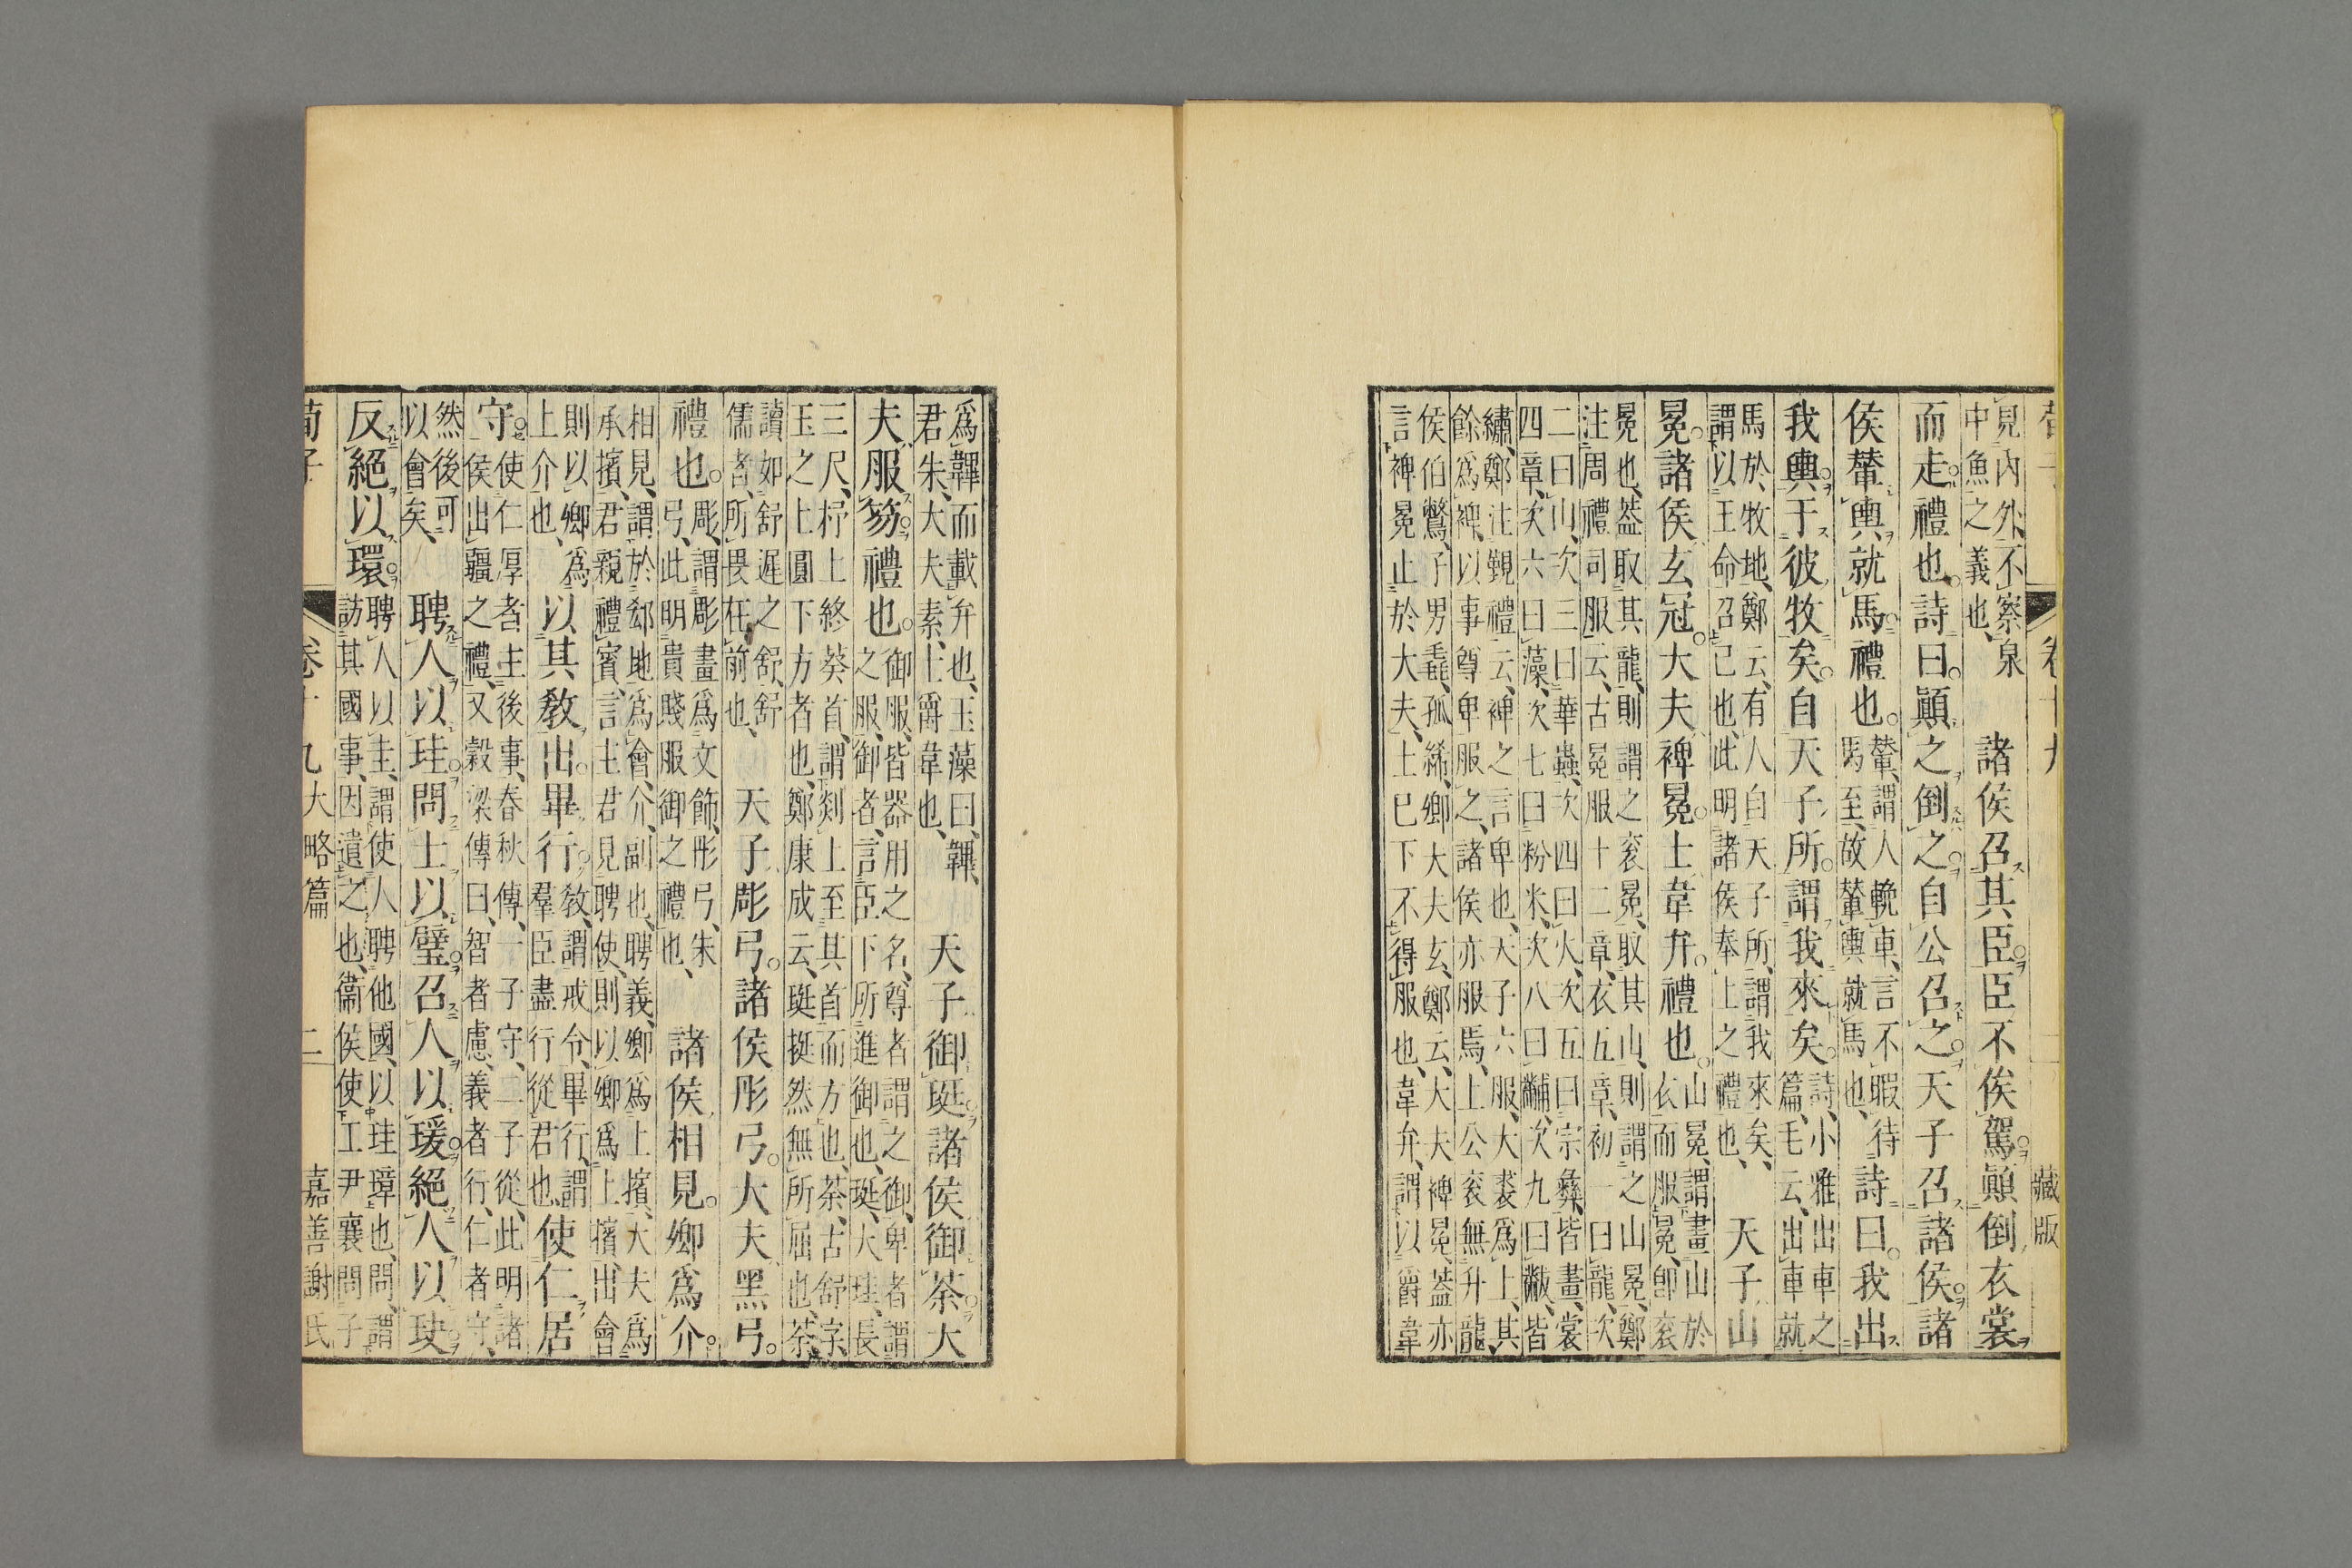 藏版
見内外、不察泉
中魚之義也、
諸侯召其臣。臣不俟駕。顛倒衣裳
而走。禮也。詩曰。顛之倒之。自公召之。天子召諸侯。諸
侯輦輿就馬。禮也。
輦、謂人輓車、言不暇待
馬至、故輦輿就馬也、
詩曰。我出
我輿。于彼牧矣。自天子所。謂我來矣。
詩、小雅出車之
篇、毛云、出車就
馬於牧地、鄭云、有人自天子所、謂我來矣、
謂以王命召己也、此明諸侯奉上之禮也、
天子山
冕。諸侯玄冠。大夫裨冕。士韋弁。禮也。
山冕、謂畫山於
衣而服冕、卽衮
冕也、葢取其龍、則謂之衮冕、取其山、則謂之山冕、鄭
注周禮司服云、古冕服十二章、衣五章、初一曰龍、次
二曰山、次三曰華蟲、次四曰火、次五曰宗彝、皆畫、裳
四章、次六曰藻、次七曰粉米、次八曰黼、次九曰黻、皆
繡、鄭注覲禮云、裨之言卑也、天子六服、大裘爲上、其
餘爲裨、以事尊卑服之、諸侯亦服焉、上公衮無升龍、
侯伯鷩、子男毳、孤絺、卿大夫玄、鄭云、大夫裨冕、葢亦
言裨冕止於大夫、士已下不得服也、韋弁、謂以爵韋
爲韠而載弁也、玉藻曰、韠、
君朱、大夫素、士爵韋也、
天子御珽。諸侯御荼。大
夫服笏。禮也。
御服、皆器用之名、尊者謂之御、卑者謂
之服、御者、言臣下所進御也、珽、大珪、長
三尺、杼上終葵首、謂剡上至其首而方也、荼、古舒字、
玉之上圓下方者也、鄭康成云、珽挺然無所屈也、荼、
讀如舒遲之舒、舒
儒者、所畏在前也、
天子彫弓。諸侯彤弓。大夫黑弓。
禮也。
彫、謂彫畫爲文飾、彤弓、朱
弓、此明貴賤服御之禮也、
諸侯相見。卿爲介。
相見、謂於郤地爲會、介、副也、聘義、卿爲上擯、大夫爲
承擯、君親禮賓、言主君見聘使、則以卿爲上擯、出會
則以卿爲
上介也、
以其教出。畢行。
教、謂戒令、畢行、謂
羣臣盡行從君也、
使仁居
守。
使仁厚者主後事、春秋傳、一子守、二子從、此明諸
侯出疆之禮、又穀梁傳曰、智者慮、義者行、仁者守、
然後可
以會矣、
聘人以珪。問士以璧。召人以瑗。絕人以玦。
反絕以環。
聘人以圭、謂使人聘他國、以珪璋也、問、謂
訪其國事、因遺之也、衞侯使工尹襄問子
荀子
卷十九大略篇
二
嘉善謝氏